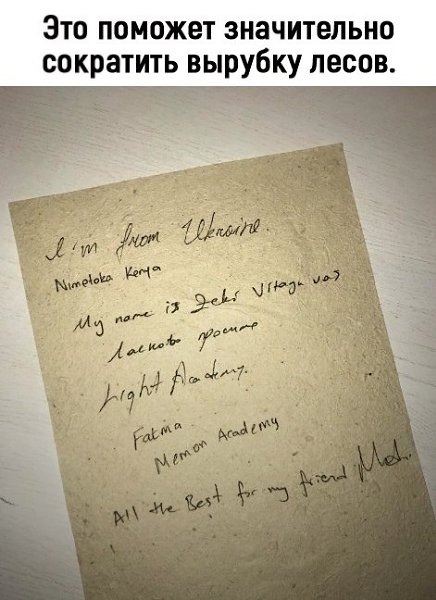 Это поможет значительно
сократить вырубку лесов.
I'm from Ukraine.
Nimetoka Kenya
My name is Zeki Vitaju vas
Ласкаво просимо
Light Academy.
Fatma
Memon Academy
All the Best for my friend